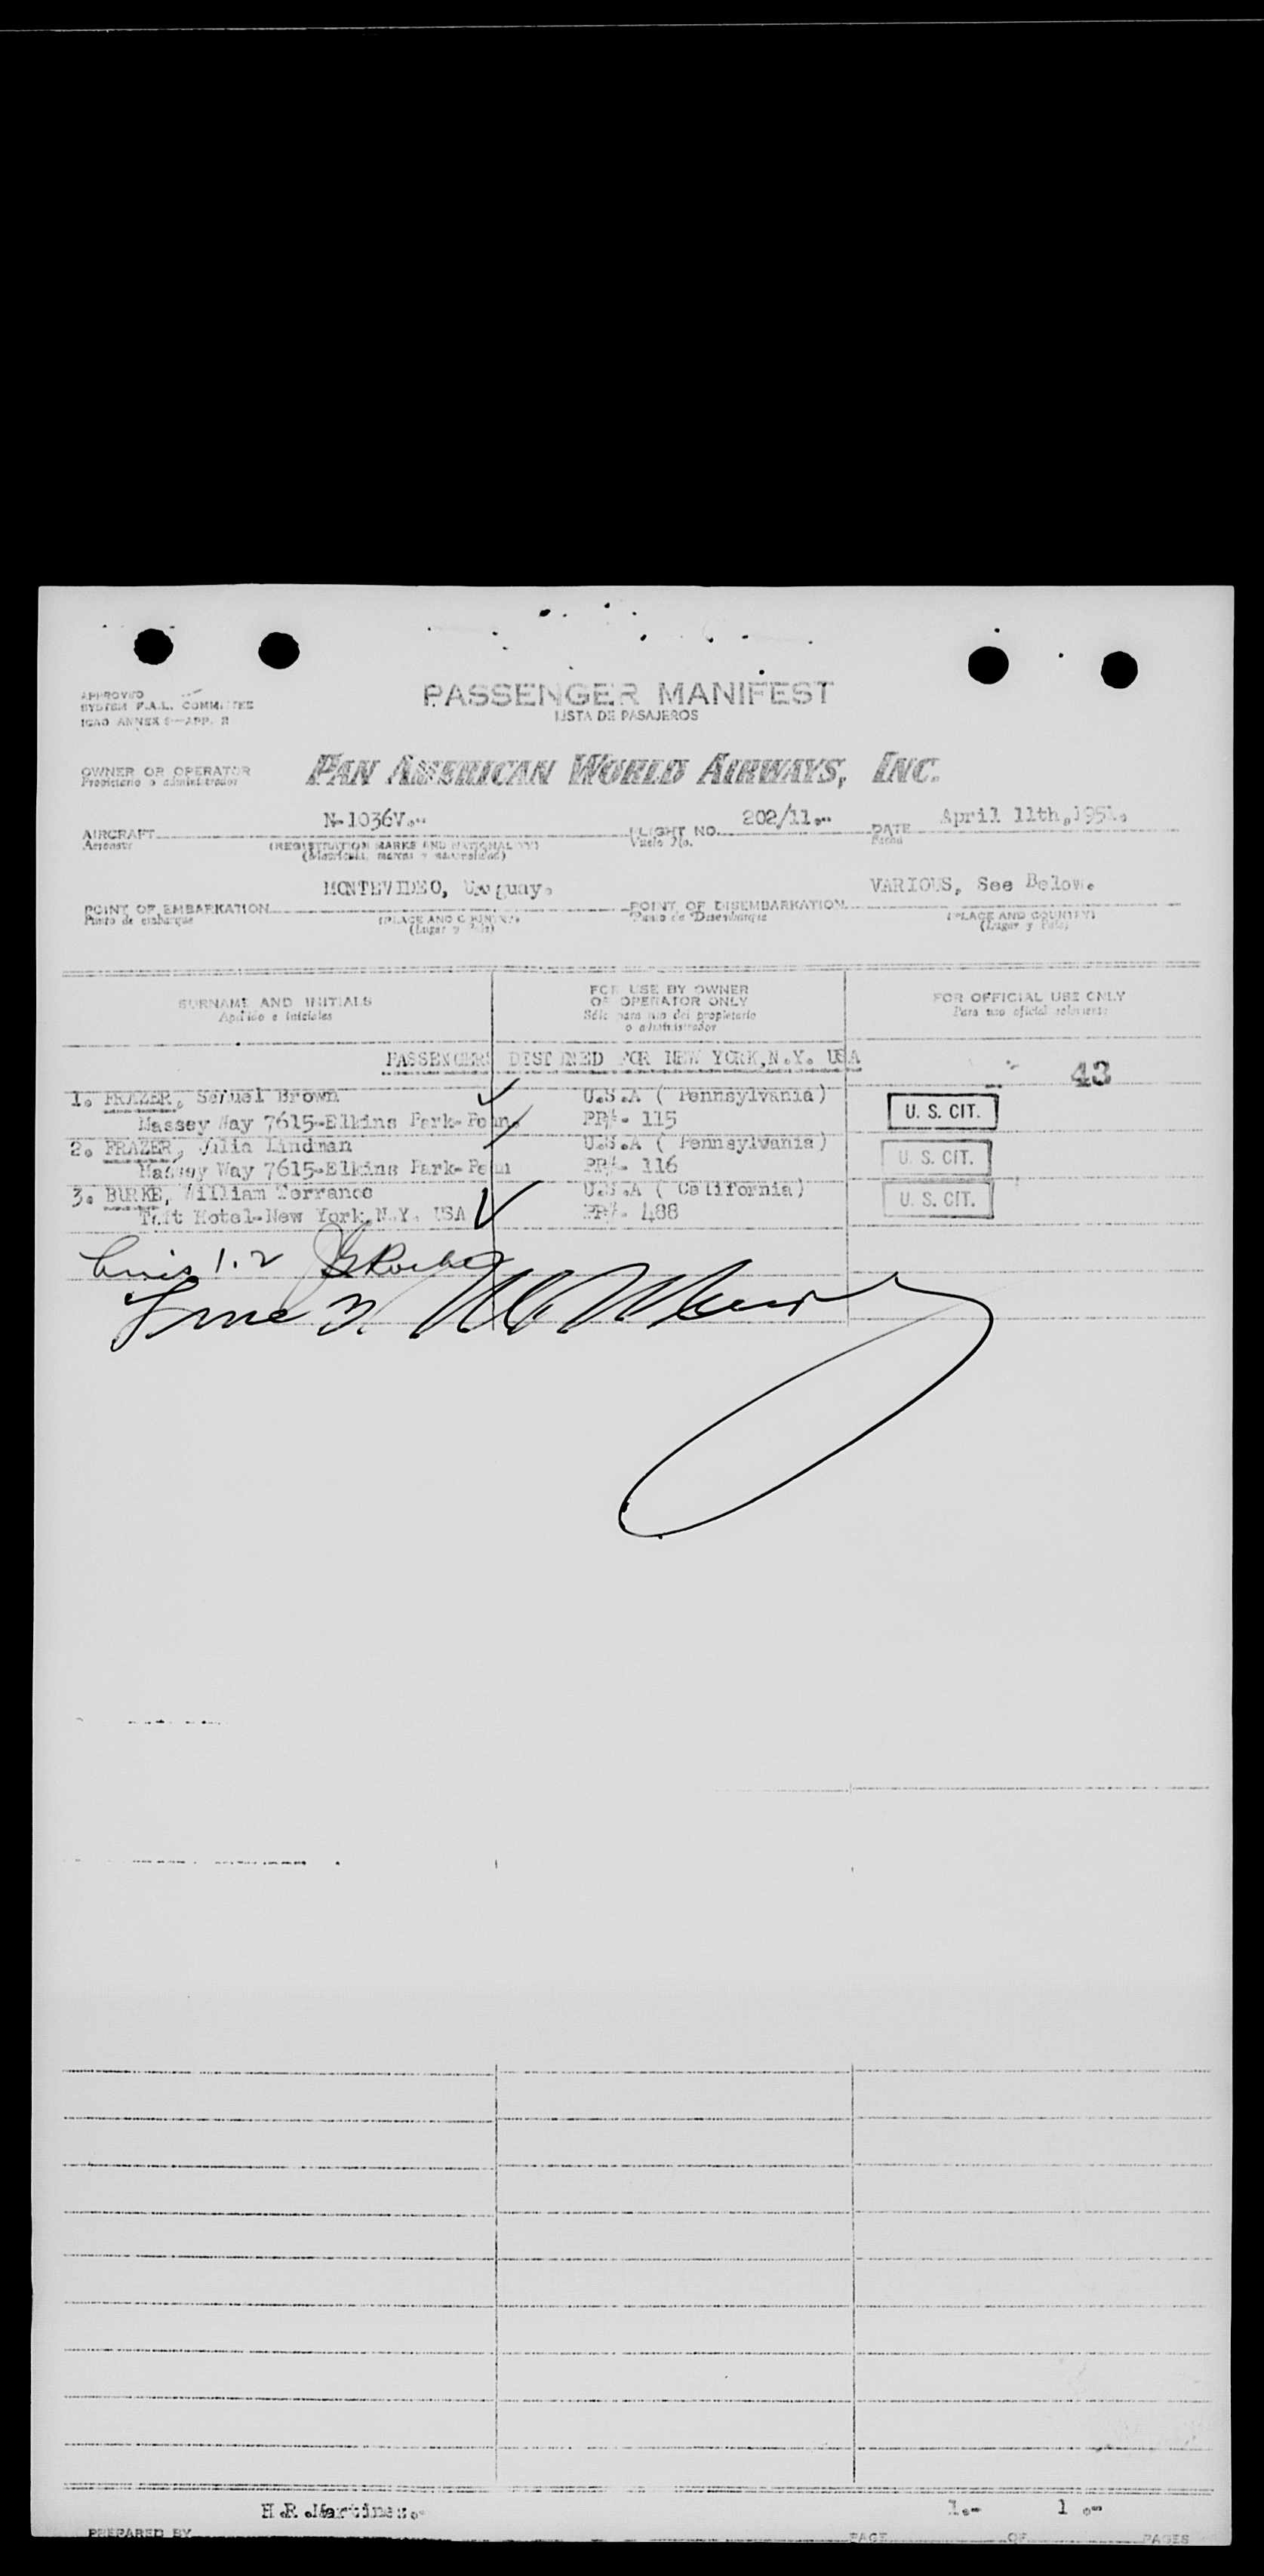 APPROVED
SYSTEM F.A.L. COMMITTEE
ICAO ANNEX 9—APP.
PASSENGER MANIFEST
LISTA DE PASAJEROS
OWNER OR OPERATOR
Propietario o administrador
PAN AMERICAN WORLD AIRWAYS, INC.
AIRCRAFT N-1036V.-- FLIGHT NO. 202/11.-- DATE April 11th,1951.
Aeronave (REGISTRATION MARKS AND NATIONALITY) Vuelo No. Fecha
(Matrícula, marcas y nacionalidad)
POINT OF EMBARKATION MONTEVIDEO, Uruguay. POINT OF DISEMBARKATION VARIOUS, See Below.
Punto de embarque (PLACE AND COUNTRY) Punto de Desembarque (PLACE AND COUNTRY)
(Lugar y País) (Lugar y País)
SURNAME AND INITIALS
Apellido e iniciales
FOR USE BY OWNER
OR OPERATOR ONLY
Sólo para uso del propietario
o administrador
FOR OFFICIAL USE ONLY
Para uso oficial solamente
PASSENGERS DISTINED FOR NEW YORK,N.Y. USA
43
1. FRAZER, Samuel Brown U.S.A ( Pennsylvania)
Massey Way 7615-Elkins Park-Penn. PP#. 115 U. S. CIT.
2. FRAZER, Lindman U.S.A ( Pennsylwania)
Massey Way 7615-Elkins Park-Penn PP#. 116 U. S. CIT.
3. BURKE, William Torrance U.S.A ( California)
Taft Hotel-New York,N.Y. USA PP#. 488 U. S. CIT.
1.2
H.R.Martinez.-
PREPARED BY
PAGE 1.- OF 1.- PAGES